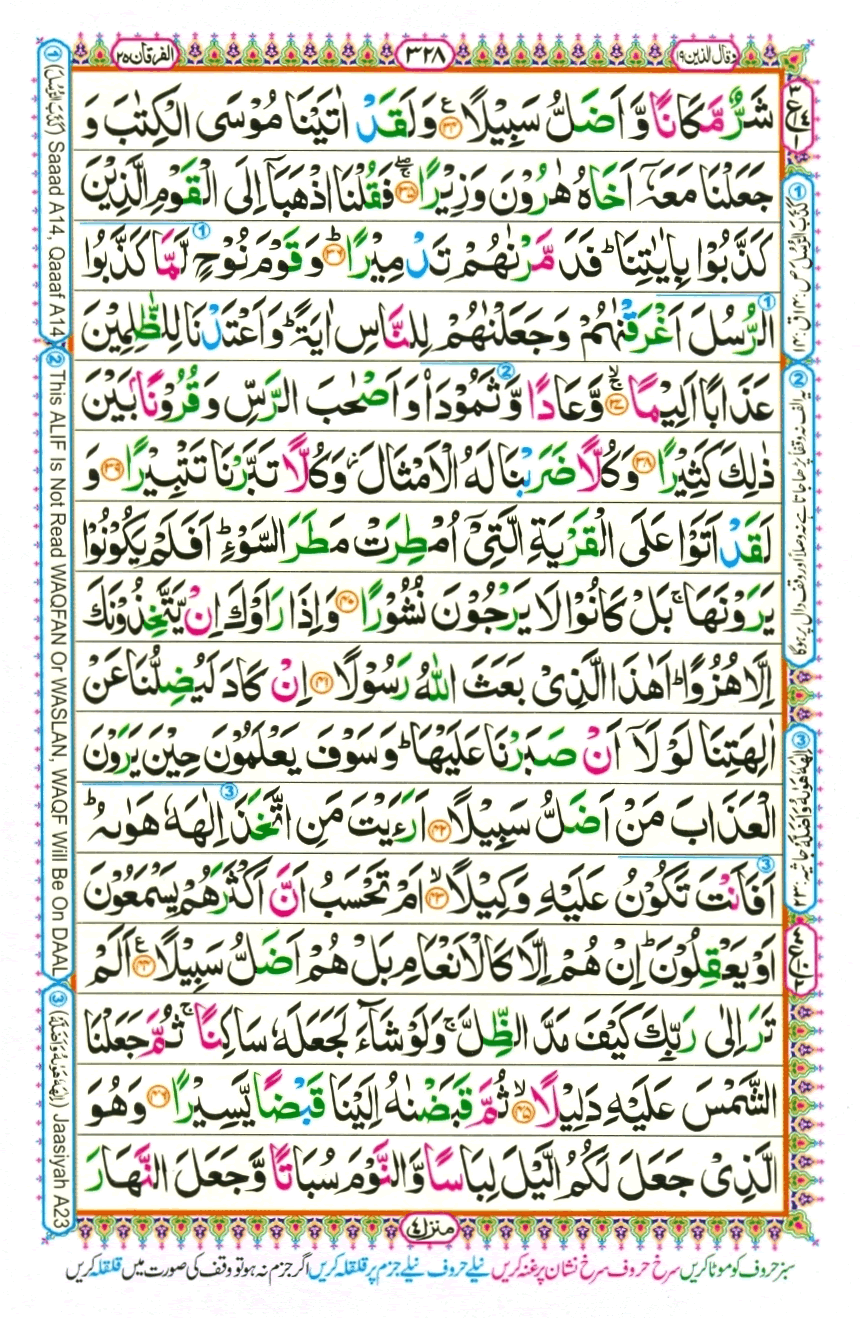 وقال الذین ۱۹
۳۲۸
الفرقان ۲۵
شَرٌّ مَّكَانًا وَّ اَضَلُّ سَبِیْلًا ﴿۳۴﴾ وَ لَقَدْ اٰتَیْنَا مُوْسَی الْكِتٰبَ وَ
جَعَلْنَا مَعَهٗۤ اَخَاهُ هٰرُوْنَ وَزِیْرًا ﴿۳۵﴾ فَقُلْنَا اذْهَبَاۤ اِلَی الْقَوْمِ الَّذِیْنَ
كَذَّبُوْا بِاٰیٰتِنَا ؕ فَدَمَّرْنٰهُمْ تَدْمِیْرًا ﴿۳۶﴾ وَ قَوْمَ نُوْحٍ لَّمَّا كَذَّبُوا
الرُّسُلَ اَغْرَقْنٰهُمْ وَ جَعَلْنٰهُمْ لِلنَّاسِ اٰیَةً ؕ وَ اَعْتَدْنَا لِلظّٰلِمِیْنَ
عَذَابًا اَلِیْمًا ﴿۳۷﴾ وَّ عَادًا وَّ ثَمُوْدَاۡ وَ اَصْحٰبَ الرَّسِّ وَ قُرُوْنًۢا بَیْنَ
ذٰلِكَ كَثِیْرًا ﴿۳۸﴾ وَ كُلًّا ضَرَبْنَا لَهُ الْاَمْثَالَ ؗ وَ كُلًّا تَبَّرْنَا تَتْبِیْرًا ﴿۳۹﴾ وَ
لَقَدْ اَتَوْا عَلَی الْقَرْیَةِ الَّتِیْۤ اُمْطِرَتْ مَطَرَ السَّوْءِ ؕ اَفَلَمْ یَكُوْنُوْا
یَرَوْنَهَا ۚ بَلْ كَانُوْا لَا یَرْجُوْنَ نُشُوْرًا ﴿۴۰﴾ وَ اِذَا رَاَوْكَ اِنْ یَّتَّخِذُوْنَكَ
اِلَّا هُزُوًا ؕ اَهٰذَا الَّذِیْ بَعَثَ اللّٰهُ رَسُوْلًا ﴿۴۱﴾ اِنْ كَادَ لَیُضِلُّنَا عَنْ
اٰلِهَتِنَا لَوْ لَاۤ اَنْ صَبَرْنَا عَلَیْهَا ؕ وَ سَوْفَ یَعْلَمُوْنَ حِیْنَ یَرَوْنَ
الْعَذَابَ مَنْ اَضَلُّ سَبِیْلًا ﴿۴۲﴾ اَرَءَیْتَ مَنِ اتَّخَذَ اِلٰهَهٗ هَوٰىهُ ؕ
اَفَاَنْتَ تَكُوْنُ عَلَیْهِ وَكِیْلًا ﴿۴۳﴾ اَمْ تَحْسَبُ اَنَّ اَكْثَرَهُمْ یَسْمَعُوْنَ
اَوْ یَعْقِلُوْنَ ؕ اِنْ هُمْ اِلَّا كَالْاَنْعَامِ بَلْ هُمْ اَضَلُّ سَبِیْلًا ﴿۴۴﴾ اَلَمْ
تَرَ اِلٰی رَبِّكَ كَیْفَ مَدَّ الظِّلَّ ۚ وَ لَوْ شَآءَ لَجَعَلَهٗ سَاكِنًا ۚ ثُمَّ جَعَلْنَا
الشَّمْسَ عَلَیْهِ دَلِیْلًا ﴿۴۵﴾ ثُمَّ قَبَضْنٰهُ اِلَیْنَا قَبْضًا یَّسِیْرًا ﴿۴۶﴾ وَ هُوَ
الَّذِیْ جَعَلَ لَكُمُ الَّیْلَ لِبَاسًا وَّ النَّوْمَ سُبَاتًا وَّ جَعَلَ النَّهَارَ
① كَذَّبَ الرُّسُلَ: ص: ۱۴، ق: ۱۴
② یہ الف نہ وقفاً پڑھا جاتا ہے نہ وصلاً اور وقف دال پر ہوگا
③ اِلٰهَهٗ هَوٰىهُ وَ اَضَلَّهُ: جاثیہ: ۲۳
① (كَذَّبَ الرُّسُلَ) Saaad A14, Qaaaf A14
② This ALIF Is Not Read WAQFAN Or WASLAN, WAQF Will Be On DAAL
③ (اِلٰهَهٗ هَوٰىهُ وَ اَضَلَّهُ) Jaasiyah A23
منزل ۴
سبز حروف کو موٹا کریں سرخ حروف سرخ نشان پر غنہ کریں نیلے حروف نیلے جزم پر قلقلہ کریں اگر جزم نہ ہو تو وقف کی صورت میں قلقلہ کریں